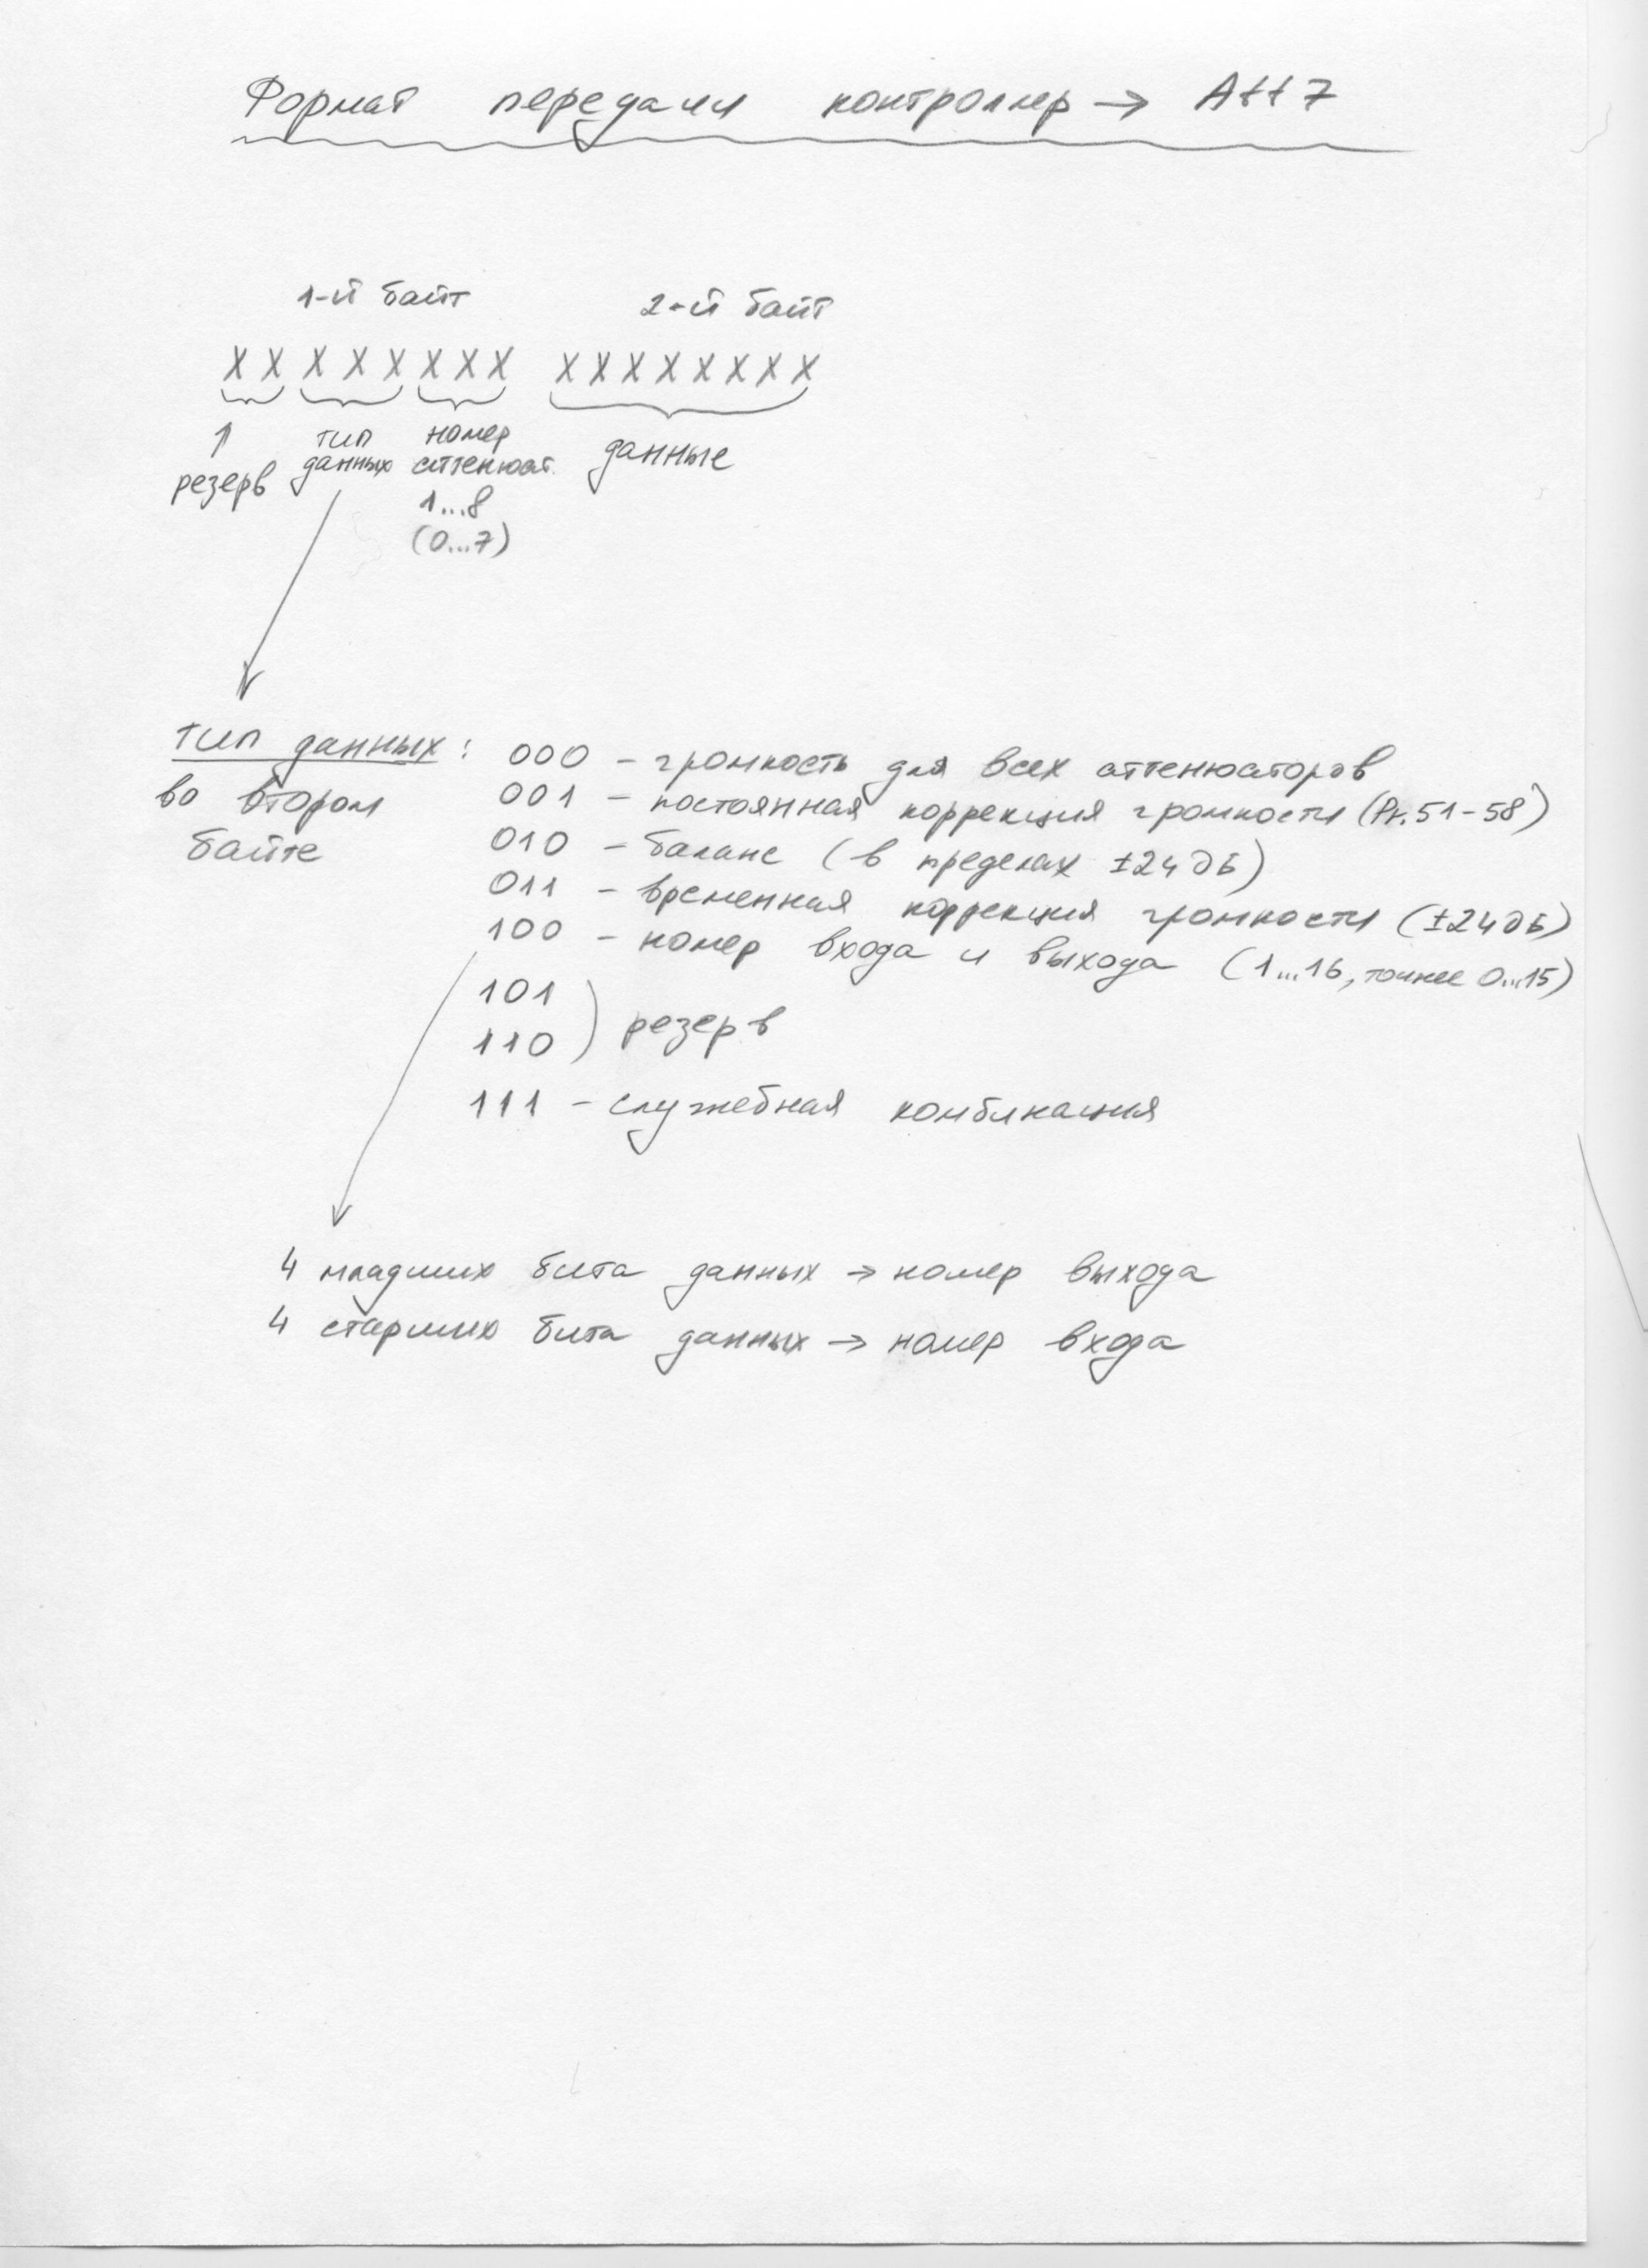 Формат передачи контроллер → Att7
1-й байт 2-й байт
X X X X X X X X X X X X X X X X
↑ тип номер данные
резерв данных аттенюат.
1...8
(0...7)
тип данных: 000 - громкость для всех аттенюаторов
во втором 001 - постоянная коррекция громкости (Pr.51-58)
байте 010 - баланс (в пределах ±24 дБ)
011 - временная коррекция громкости (±24 дБ)
100 - номер входа и выхода (1...16, точнее 0...15)
101
110 ) резерв
111 - служебная комбинация
4 младших бита данных → номер выхода
4 старших бита данных → номер входа